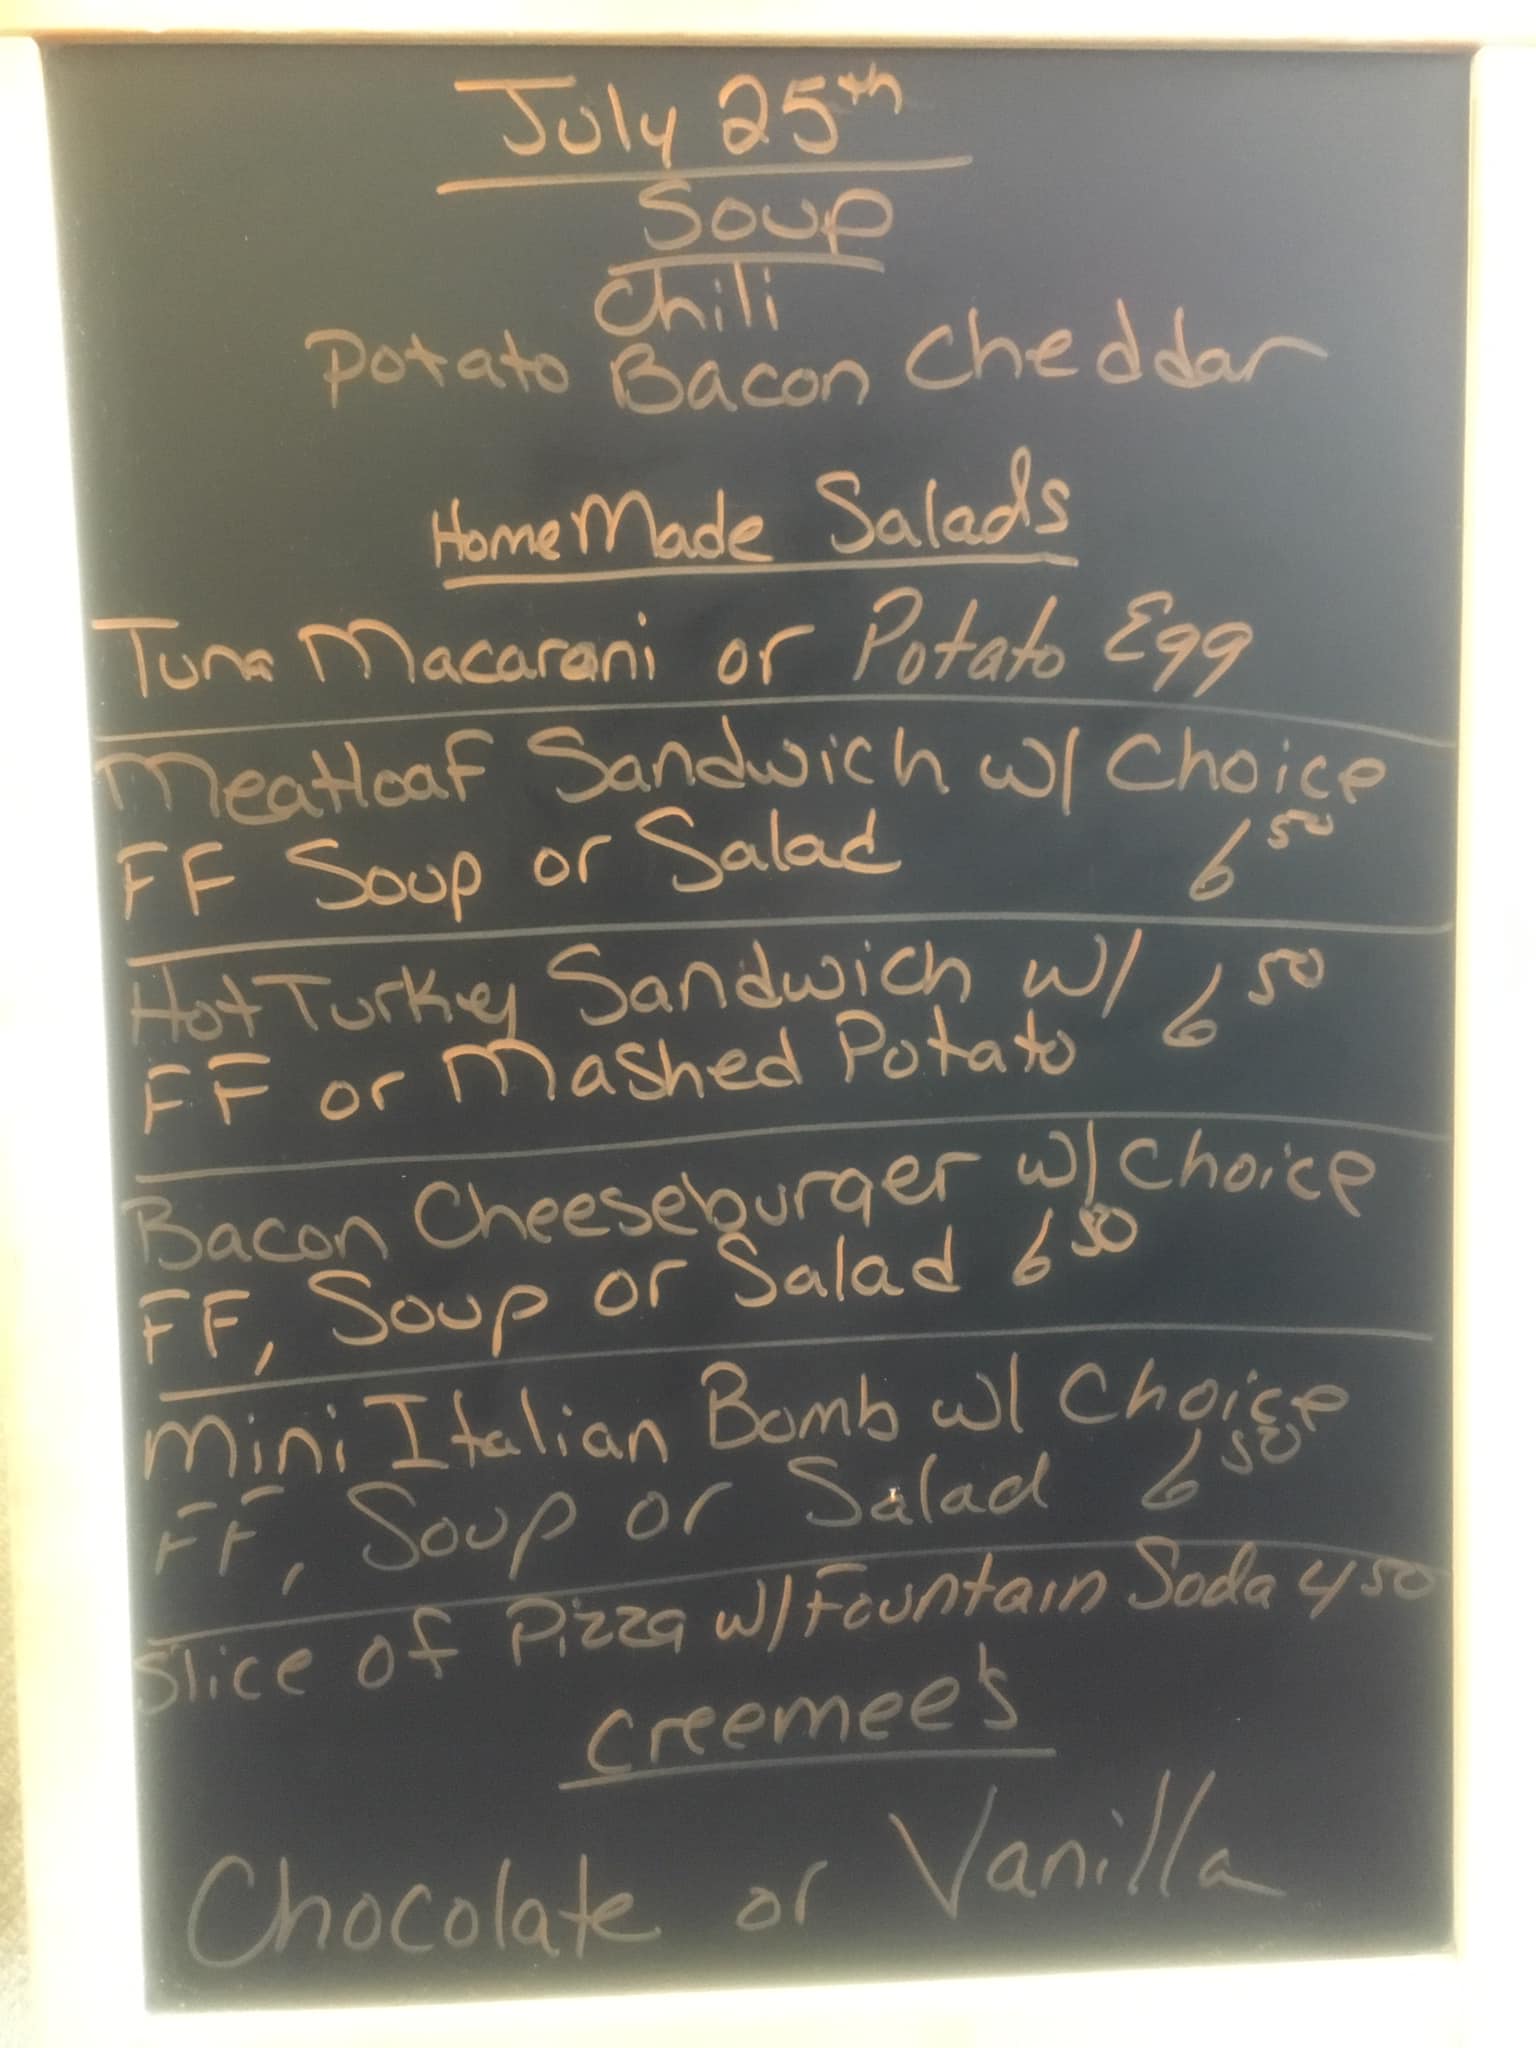 July 25th
Soup
Chili
Potato Bacon Cheddar
HomeMade Salads
Tuna Macarani or Potato Egg
Meatloaf Sandwich w/ Choice
FF Soup or Salad 6 50
Hot Turkey Sandwich w/ 6 50
FF or Mashed Potato
Bacon Cheeseburger w/ Choice
FF, Soup or Salad 6 50
Mini Italian Bomb w/ Choice
FF, Soup or Salad 6 50
Slice of Pizza w/ Fountain Soda 4 50
Creemee's
Chocolate or Vanilla